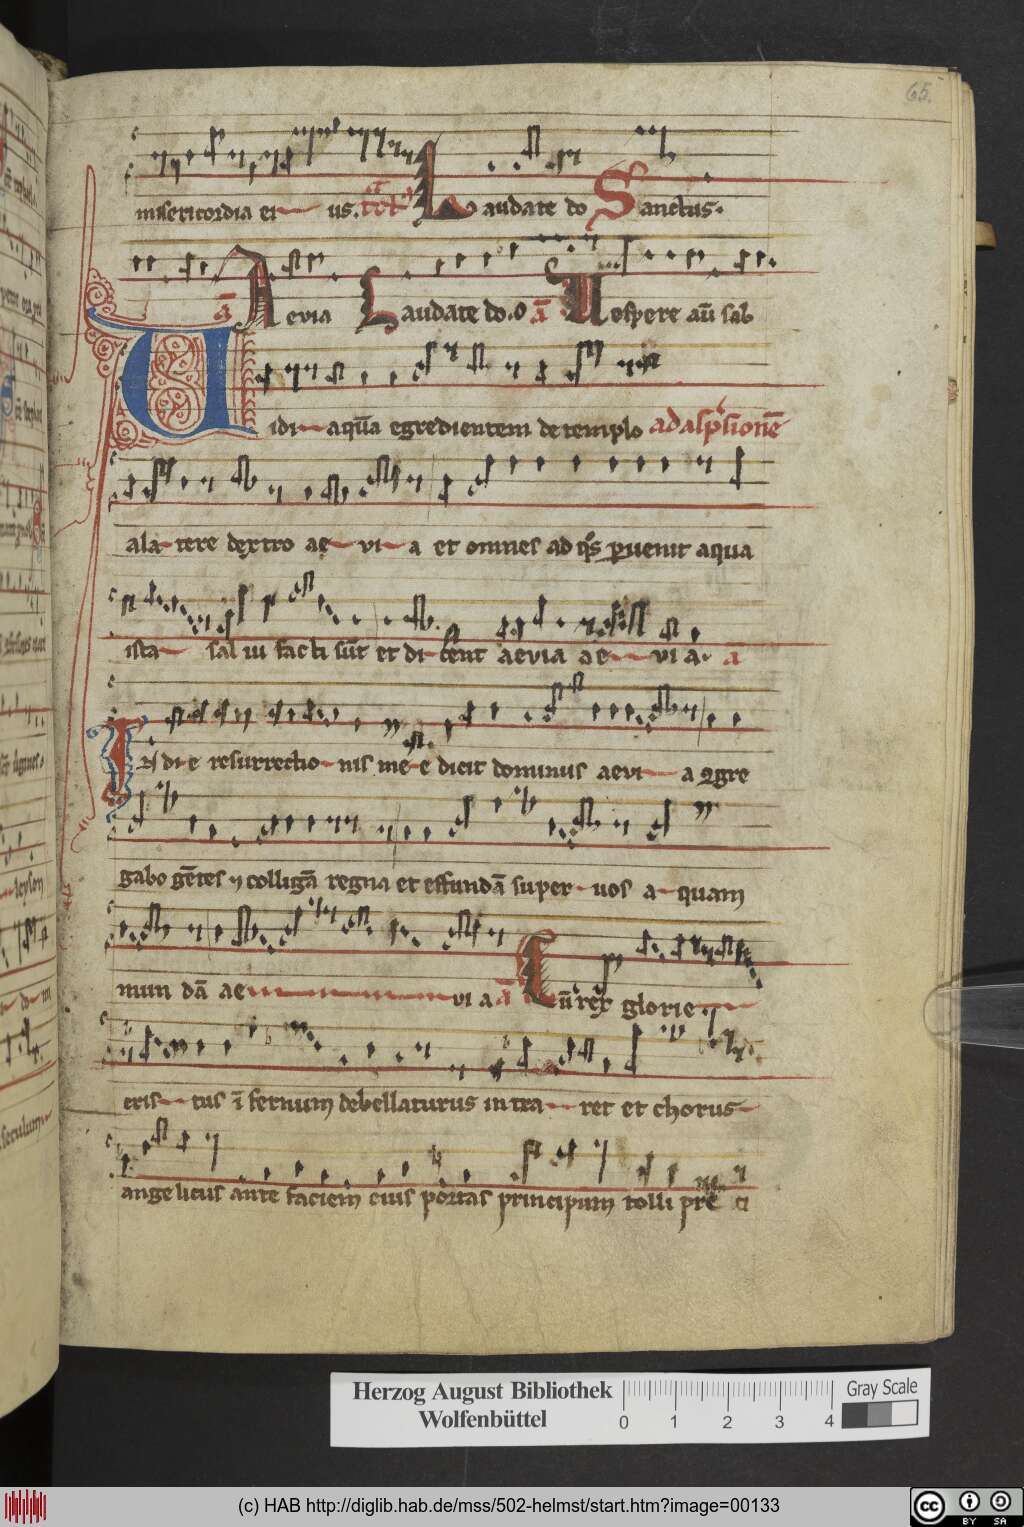 65.
misericordia ei us. Laudate do Sanctus.
a Aevia Laudate do.o ā Uespere aū sab
Uidi aquā egredientem de templo ad aspersionē
a latere dextro ae vi a et omnes ad qs puenit aqua
ista salui facti sūt et dicent aevia ae vi a. a
In die resurrectionis mee dicit dominus aevi a 9gre
gabo gētes ⁊ colligā regna et effundā super vos aquam
mundā ae vi a ā Cū rex glorie
eristus ī fernum debellaturus intraret et chorus
angelicus ante faciem eius portas principum tolli pre ci
Herzog August Bibliothek
Wolfenbüttel
0 1 2 3 4
Gray Scale
(c) HAB http://diglib.hab.de/mss/502-helmst/start.htm?image=00133
cc BY SA